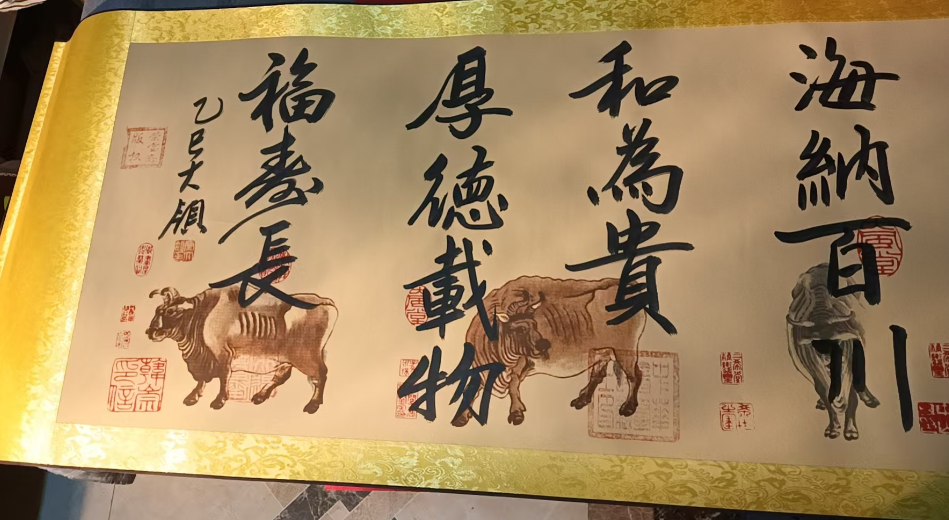 海納百川
和為貴
厚德載物
福壽長
乙巳大領